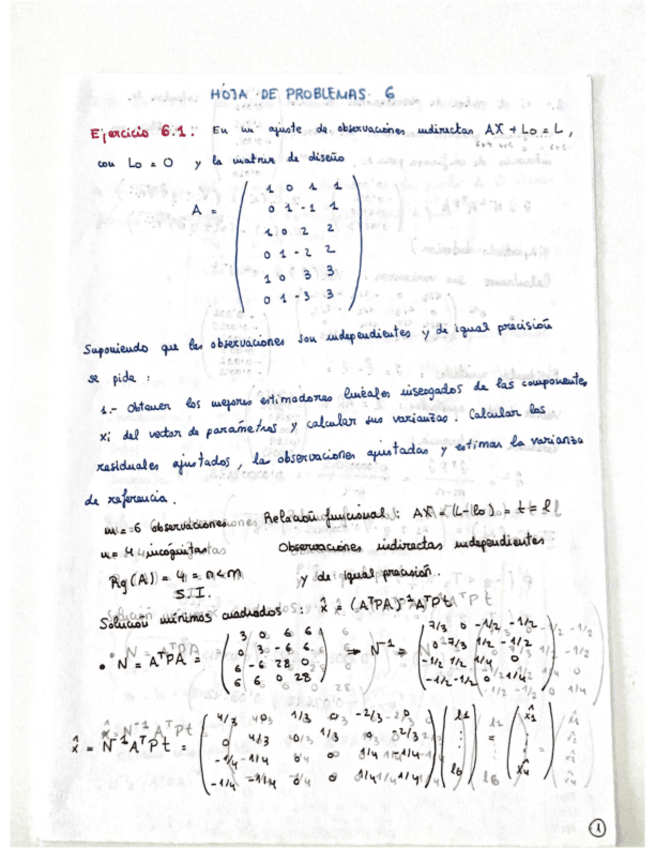 HOJA DE PROBLEMAS 6
Ejercicio 6.1: En un ajuste de observaciones indirectas AX + Lo = L,
con Lo = 0 y la matriz de diseño
A =
1 0 1 1
0 1 -1 1
1 0 2 2
0 1 -2 2
1 0 3 3
0 1 -3 3
Suponiendo que las observaciones son independientes y de igual precisión
se pide:
1.- Obtener los mejores estimadores lineales insesgados de las componentes
xi del vector de parámetros y calcular sus varianzas. Calcular los
residuales ajustados, las observaciones ajustadas y estimar la varianza
de referencia.
m = 6 observaciones Relación funcional: AX = (L-Lo) = t = l
n = 4 incógnitas Observaciones indirectas independientes
Rg(A) = 4 = n < m y de igual precisión.
S.I.
Solución mínimos cuadrados: x̂ = (AᵀPA)⁻¹AᵀPt
• N = AᵀPA =
3 0 6 6
0 3 -6 6
6 -6 28 0
6 6 0 28
⇒ N⁻¹ =
7/3 0 -1/2 -1/2
0 7/3 1/2 -1/2
-1/2 1/2 1/4 0
-1/2 -1/2 0 1/4
x̂ = N⁻¹AᵀPt =
4/3 0 1/3 0 -2/3 0
0 4/3 0 1/3 0 -2/3
-1/4 1/4 0 0 1/4 -1/4
-1/4 -1/4 0 0 1/4 1/4
l1
⋮
l6
=
x̂1
⋮
x̂4
1